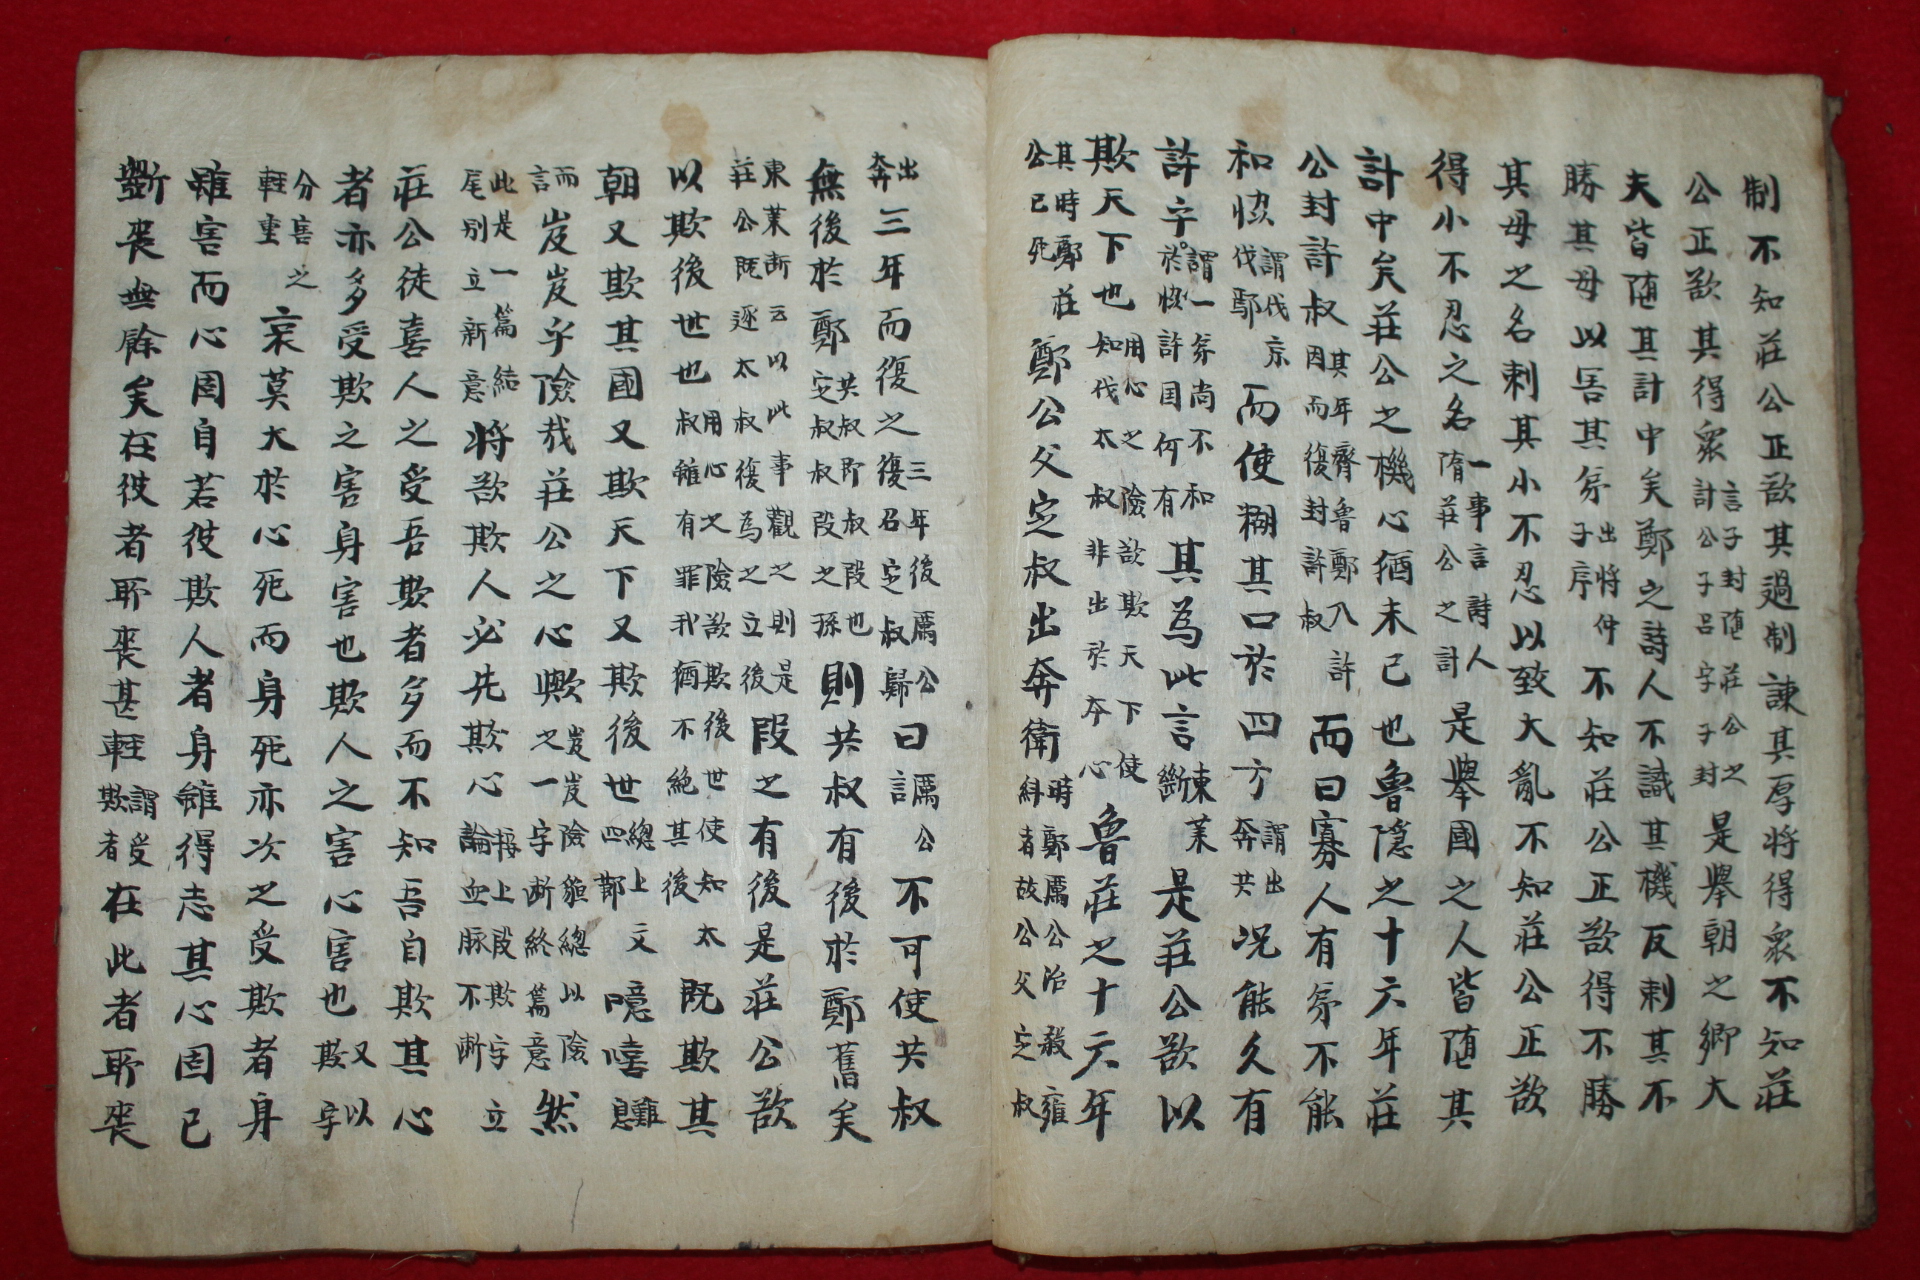 制不知莊公正欲其過制諫其厚將得衆不知莊
公正欲其得衆言子封隨莊公之計公子呂字子封是擧朝之卿大
夫皆随其計中矣鄭之詩人不識其機反刺其不
勝其母以害其弟出將仲子序不知莊公正欲得不勝
其母之名刺其小不忍以致大亂不知莊公正欲
得小不忍之名一事言詩人隋莊公之計是擧國之人皆随其
計中矣莊公之機心猶未已也魯隱之十六年莊
公封許叔其年齊魯鄭入許因而復封許叔而曰寡人有弟不能
和恊謂伐京伐鄢而使糊其口於四方謂出奔共况能久有
許乎謂一弟尚不和於恊許国何有其為此言斷東莱是莊公欲以
欺天下也用心之險欲欺天下使知伐太叔非出於本心魯莊之十六年
其時鄭莊公已死鄭公父定叔出奔衛時鄭厲公治殺雍糾者故公父定叔
出奔三年而復之三年後厲公復召定叔歸曰謂厲公不可使共叔
無後於鄭共叔即叔段也定叔叔段之孫則共叔有後於鄭舊矣
東莱断云以此事觀之則是莊公既逐太叔復為之立後段之有後是莊公欲
以欺後世也用心之險欲欺後世使知太叔雖有罪我猶不絶其後既欺其
朝又欺其國又欺天下又欺後世總上文四節噫嘻難息
而言岌岌乎險哉莊公之心歟岌岌險貌總以險之一字断終篇意然
此是一篇結尾別立新意將欲欺人必先欺心接上段欺字立論血脉不断
莊公徒喜人之受吾欺者多而不知吾自欺其心
者亦多受欺之害身害也欺人之害心害也又以欺字
分害之輕重哀莫大於心死而身死亦次之受欺者身
雖害而心固自若彼欺人者身雖得志其心固已
斷喪無餘矣在彼者所喪甚輕謂受欺者在此者所喪